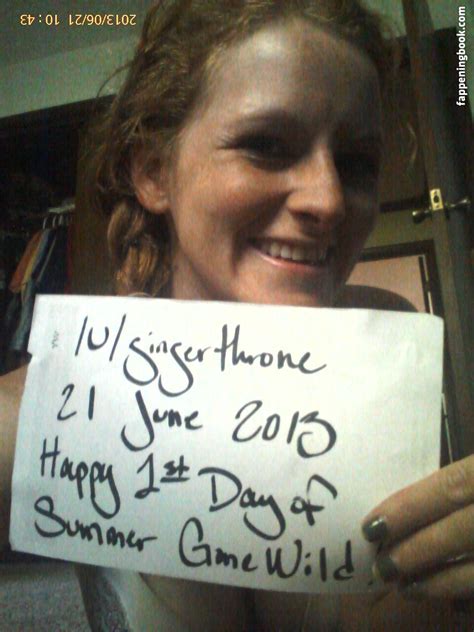 2013/06/21 10:43
fappeningbook.com
/u/gingerthrone
21 June 2013
Happy 1st Day of
Summer GoneWild!